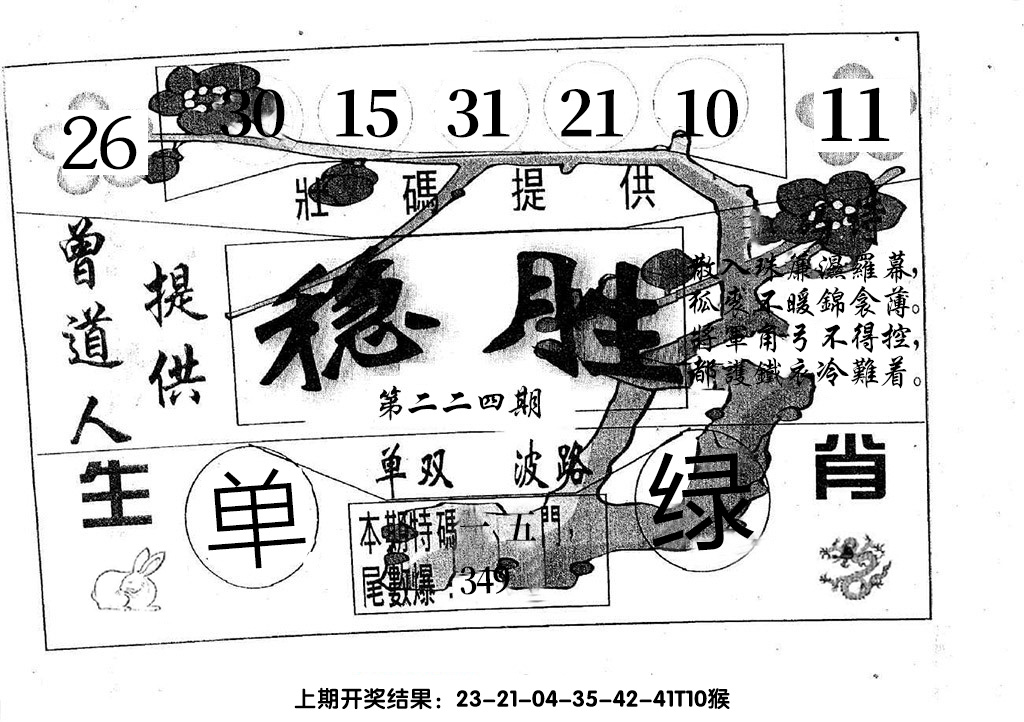 26 30 15 31 21 10 11
壯碼提供
曾道人
提供
特
散入珠簾濕羅幕,
狐裘不暖錦衾薄。
將軍角弓不得控,
都護鐵衣冷難着。
稳胜
第二二四期
单双 波路
生 肖
单 绿
本期特碼一、五門,
尾數爆:349
上期开奖结果：23-21-04-35-42-41T10猴